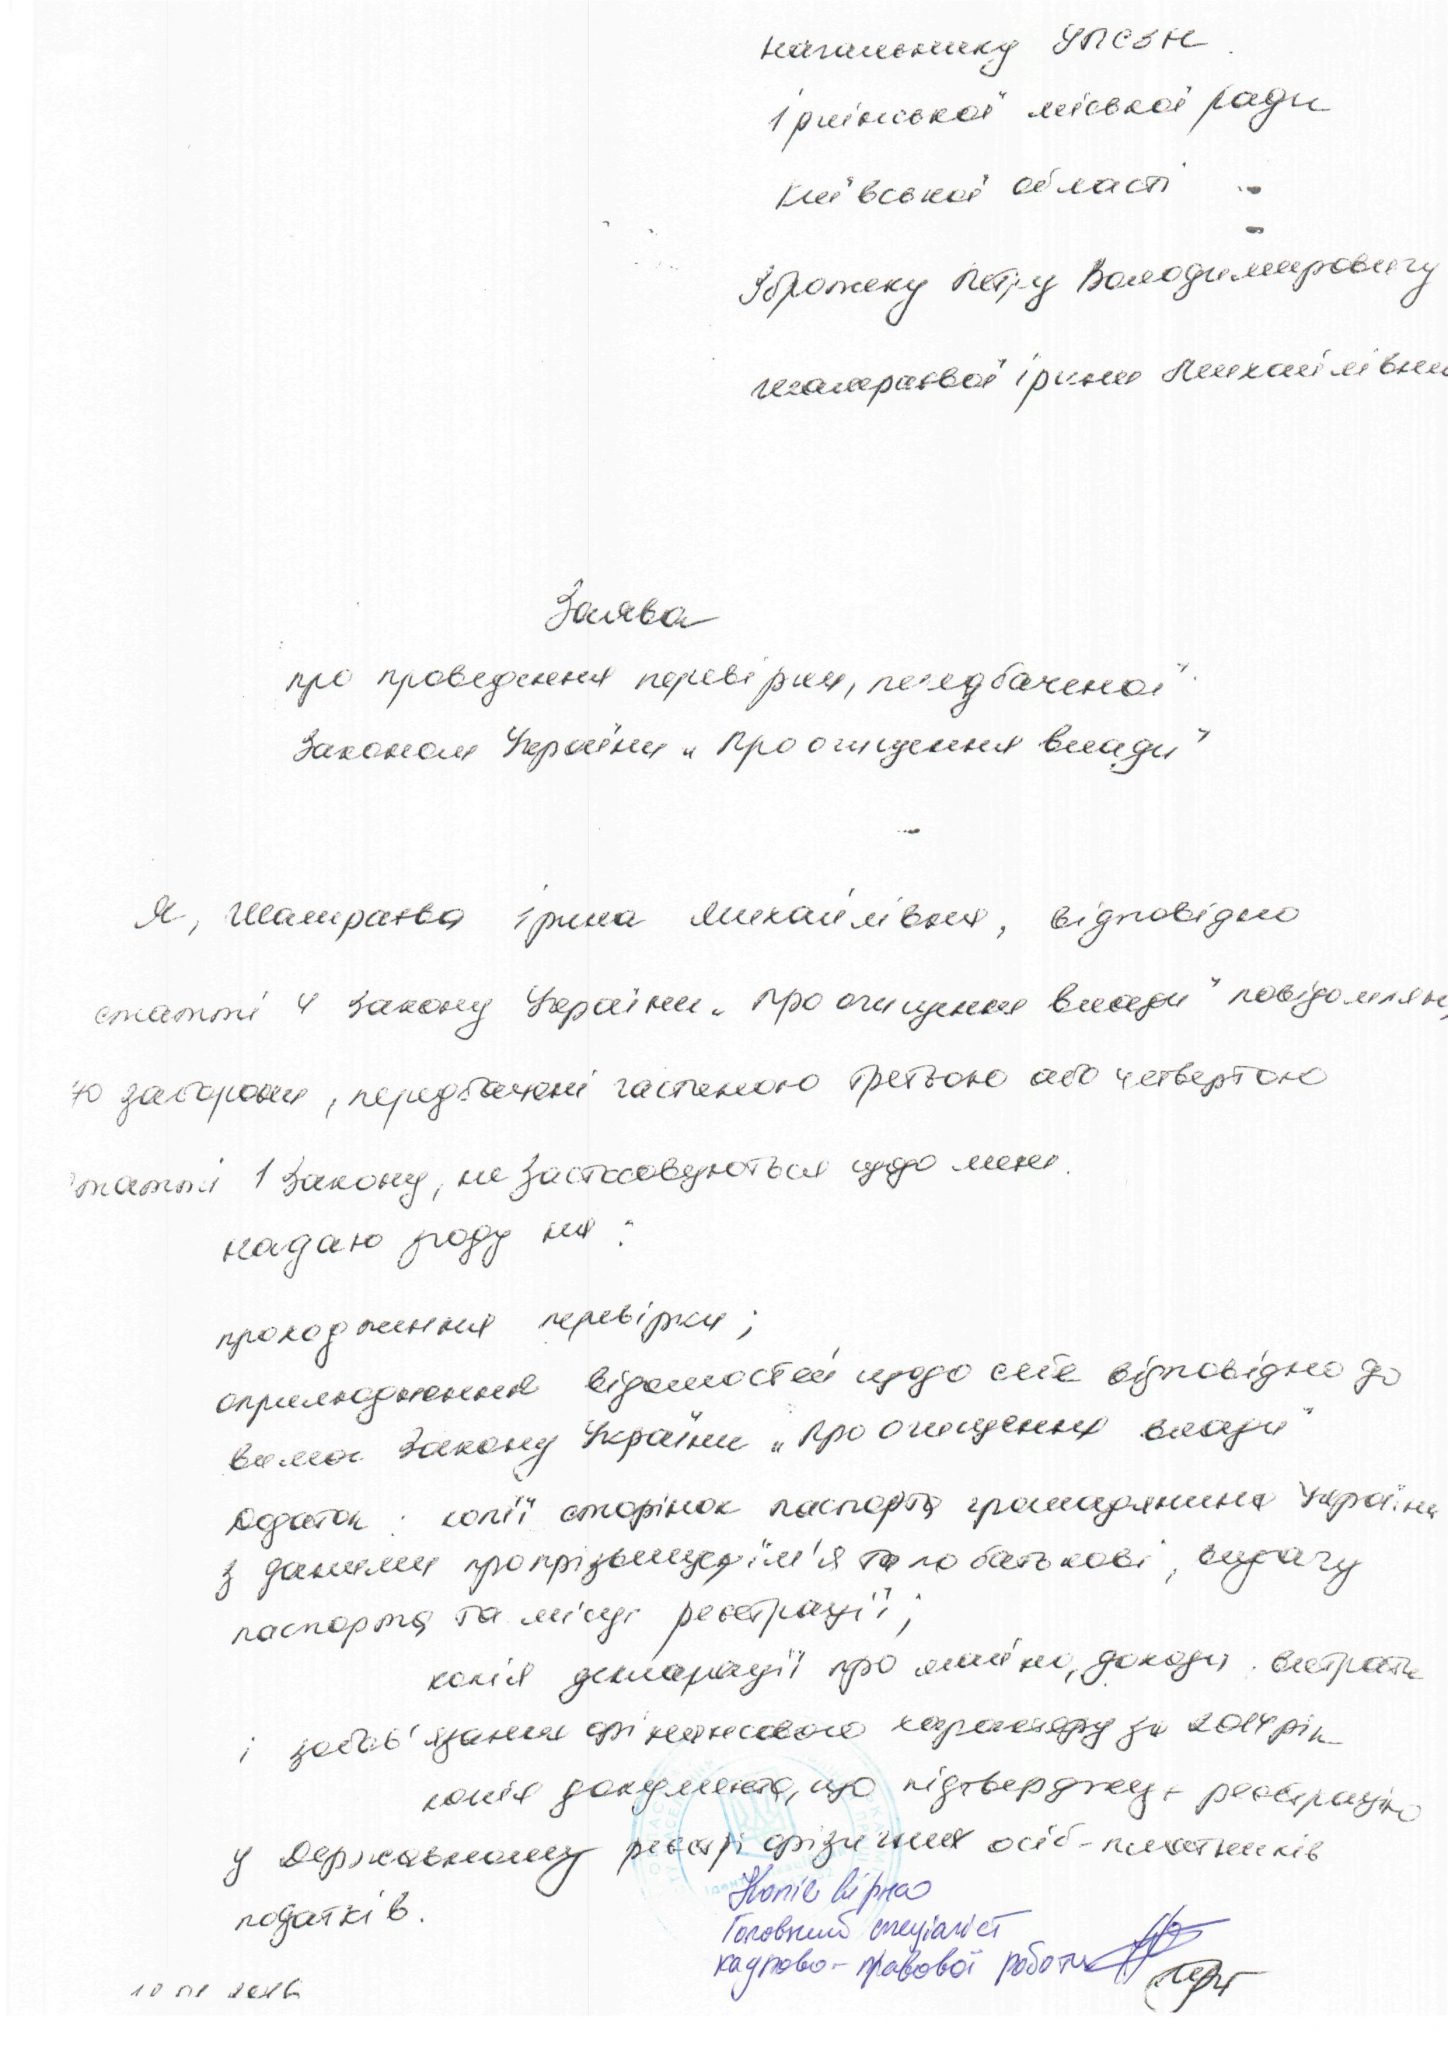 Начальнику УПСЗН
Ірпінської міської ради
Київської області
Зброжеку Петру Володимировичу
Шамраєвої Ірини Михайлівни
Заява
про проведення перевірки, передбаченої
Законом України „Про очищення влади"
Я, Шамраєва Ірина Михайлівна, відповідно
статті 4 Закону України „Про очищення влади" повідомляю,
що заборони, передбачені частиною третьою або четвертою
статті 1 Закону, не застосовуються щодо мене.
Надаю згоду на:
проходження перевірки;
оприлюднення відомостей щодо себе відповідно до
вимог Закону України „Про очищення влади"
Додаток: копії сторінок паспорта громадянина України
з даними про прізвище, ім'я та по батькові, видачу
паспорта та місце реєстрації;
копія декларації про майно, доходи, витрати
і зобов'язання фінансового характеру за 2014 рік
копія документа, що підтверджує реєстрацію
у Державному реєстрі фізичних осіб-платників
податків.
Копія вірна
Головний спеціаліст
кадрово-правової роботи